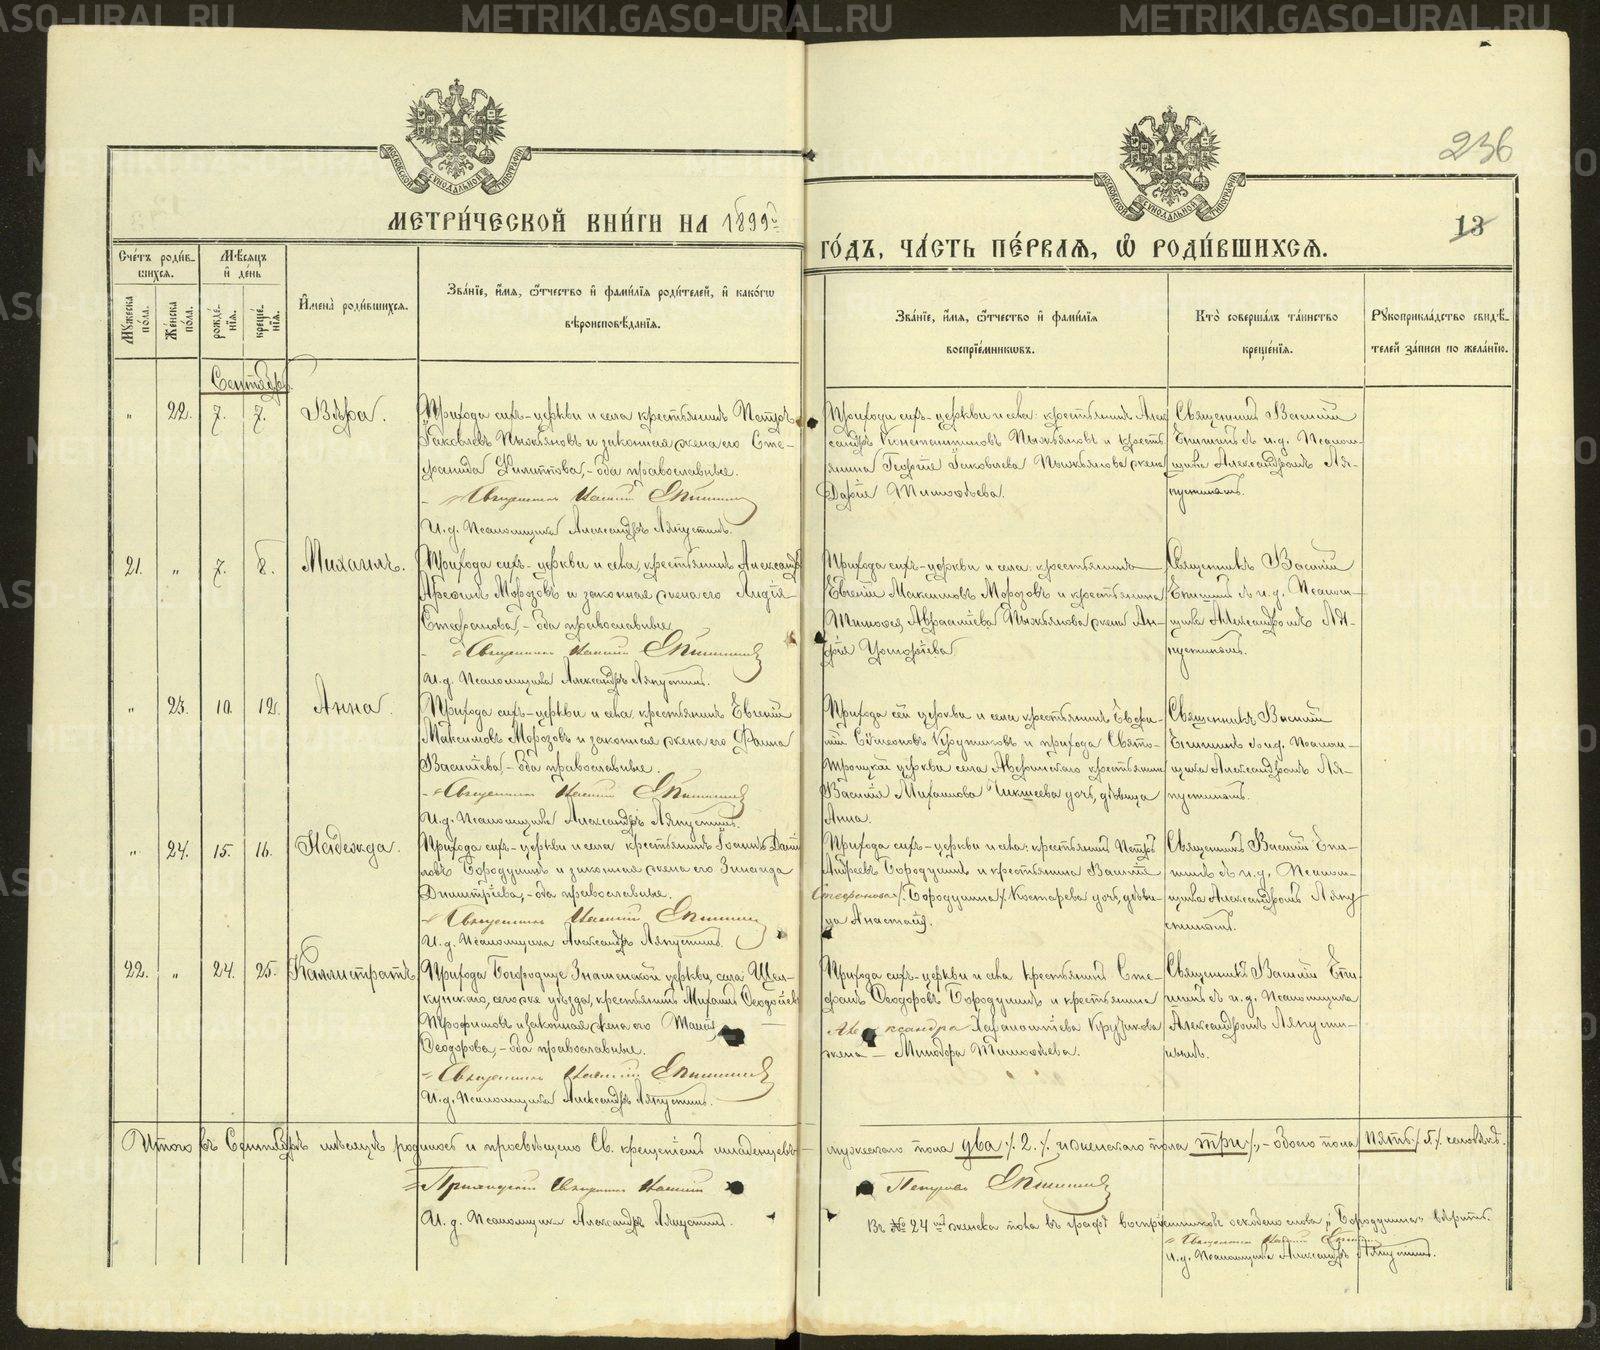 METRIKI.GASO-URAL.RU
236
13
МЕТРИ́ЧЕСКОЙ КНИ́ГИ НА 1899й
ГО́ДЪ, ЧА́СТЬ ПЕ́РВАЯ, Ѽ РОДИ́ВШИХСЯ.
Сче́тъ роди́в-
шихся.
Мѣ́сяцъ
и де́нь
Му́жеска по́ла.
Же́нска по́ла.
рожде́нїя.
креще́нїя.
И҆мена̀ роди́вшихся.
Зва́нїе, и҆́мя, ѻ҆́тчество и҆ фами́лїя роди́телей, и҆ како́гѡ
вѣроисповѣ́данїя.
Зва́нїе, и҆́мя, ѻ҆́тчество и҆ фами́лїя
воспрїе́мникѡвъ.
Кто̀ соверша́лъ та́инство
креще́нїя.
Рꙋкоприкла́дство свидѣ́-
телей за́писи по жела́нїю.
Сентябрь.
" 22. 7. 7. Вѣра.
Прихода сихъ-церкви и села крестьянинъ Петръ
Іаковлевъ Пыжьяновъ и законная жена его Сте-
фанида Филиппова, - оба православные.
Священникъ Василій
И. д. Псаломщика Александръ Ляпустинъ.
Прихода сихъ-церкви и села: крестьянинъ Алек
сандръ Константиновъ Пыжьяновъ и кресть
янина Георгія Іаковлева Пыжьянова жена
Дарія Тимоѳеева.
Священникъ Василій
и. д. Псалом-
щика Александромъ Ля-
пустинымъ.
21. " 7. 8. Михаилъ.
Прихода сихъ-церкви и села, крестьянинъ Александръ
Морозовъ и законная жена его Лидія
Стефанова, - оба православные.
Священникъ Василій
И. д. Псаломщика Александръ Ляпустинъ.
Прихода сихъ-церкви и села: крестьянинъ
Евгеній Максимовъ Морозовъ и крестьянина
Тимоѳея Авраамиева Пыжьянова жена
Григоріева
Священникъ Василій
и. д. Псалом-
щика Александромъ Ля-
пустинымъ.
" 23. 10. 12. Анна.
Прихода сихъ-церкви и села, крестьянинъ Евгеній
Максимовъ Морозовъ и законная жена его Фаина
Василіева, - оба православные.
Священникъ Василій
И. д. Псаломщика Александръ Ляпустинъ.
Прихода сей церкви и села крестьянинъ
Симеоновъ Крутиковъ и прихода Свято-
Троицкой церкви села Аверинскаго крестьянина
Василія Михаилова дочь, дѣвица
Анна.
Священникъ Василій
и. д. Псалом-
щика Александромъ Ля-
пустинымъ.
" 24. 15. 16. Надежда.
Прихода сихъ-церкви и села крестьянинъ Іоаннъ
Бородулинъ и законная жена его Зинаида
Димитріева, - оба православные.
Священникъ Василій
И. д. Псаломщика Александръ Ляпустинъ.
Прихода сихъ-церкви и села: крестьянинъ Петръ
Андреевъ Бородулинъ и крестьянина Василія
Стефанова /. Бородулина /. Костарева дочь, дѣви-
ца Анастасія.
Священникъ Василій
и. д. Псалом-
щика Александромъ Ляпу
стинымъ.
22. " 24. 25. Каллистратъ.
Прихода Богородице Знаменской церкви, села Щел-
кунскаго, сего же уѣзда, крестьянинъ Михаилъ Ѳеодосіевъ
Трофимовъ и законная жена его
Ѳеодорова, - оба православные.
Священникъ Василій
И. д. Псаломщика Александръ Ляпустинъ.
Прихода сихъ-церкви и села крестьянинъ Сте-
фанъ Ѳеодоровъ Бородулинъ и крестьянина
Александра Харлампіева
жена - Минодора Тимоѳеева.
Священникъ Василій
и. д. Псаломщика
Александромъ Ляпусти-
нымъ.
Итого въ Сентябрѣ мѣсяцѣ родилось и просвѣщено Св. крещеніемъ младенцевъ
мужескаго пола два /. 2. /. и женскаго пола три /, - обоего пола пять /. 5. /. человѣкъ.
Приходскій Священникъ Василій
И. д. Псаломщика Александръ Ляпустинъ.
Въ № 24 женска пола въ графѣ воспріемниковъ слова „Бородулина" вѣрить.
Священникъ Василій
И. д. Псаломщика Александръ Ляпустинъ.